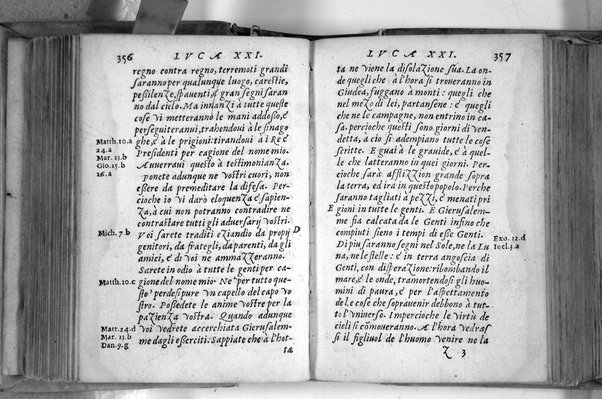 356 LVCA XXI.
regno contra regno, terremoti grandi
saranno per qualunque luogo, carestie,
pestilenze, spauenti, & gran segni saran
no dal cielo. Ma innanzi à tutte queste
cose vi metteranno le mani addosso, è
perseguiteranui, trahendoui à le sinago
Matth.10.a
ghe, è à le prigioni: tirandoui à i Re è
24.a
Presidenti per cagione del nome mio.
Mar. 13.b
Auuerraui questo à testimonianza.
Gio.15.b
16.a
Ponete adunque ne vostri cuori, non
essere da premeditare la difesa. Per
cioche io vi darò eloquenza è sapien
za, à cui non potranno contradire ne
contrastare tutti gli aduersarij vostri.
Mich. 7.b
Voi sarete traditi etiandio da proprij
D
genitori, da frategli, da parenti, da gli
amici, è di voi ne ammazzeranno.
Sarete in odio à tutte le genti per ca-
Matth.10.c
gione del nome mio. Ne per tutto que-
sto perdesi pure vn capello del capo vo
stro. Possedete le anime vostre per la
pazienza vostra. Quando adunque
Matt.24.d
voi vedrete accerchiata Gierusalem-
Mar. 13.b
me dagli esserciti. Sappiate che à l'hot-
Dan.9.g
ta
LVCA XXI. 357
ta ne viene la disolazione sua. La on-
de quegli che à l'hora si troueranno in
Giudea, fuggano à monti: quegli che
nel mezo di lei, partansene: è quegli
che ne le campagne, non entrino in ca-
sa. percioche questi sono giorni di ven-
detta, à cio si adempiano tutte le cose
scritte. E guai à le grauide, è à quel-
le che latteranno in quei giorni. Per-
cioche sarà afflizzion grande sopra
la terra, ed ira in questo popolo. Perche
saranno tagliati à pezzi, è menati pri
E
gioni in tutte le genti. E Gierusalem-
me fia calcata da le Genti infino che
compiuti sieno i tempi di esse Genti.
Exo. 12.d
Di piu saranno segni nel Sole, ne la Lu
Ioel.3.a
na, ne le stelle: è in terra angoscia di
Genti, con disperazione: ribombando il
mare, è le onde, tramortendosi gli huo-
mini di paura, è per l'aspettamento
del, e cose che soprauenir debbono à tut-
to l'vniuerso. Impercioche le virtù de
cieli si cōmoueranno. A l'hora vedras
si il figliuol de l'huomo venire ne la
Z 3